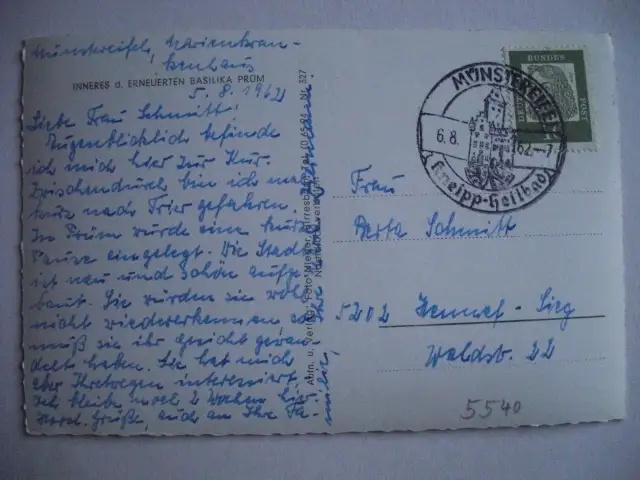 Münstereifel, Marienkran-
kenhaus
INNERES d. ERNEUERTEN BASILIKA PRÜM
5.8.1962
Liebe Frau Schmitt!
Augenblicklich befinde
ich mich hier zur Kur.
Zwischendurch bin ich mal
kurz nach Trier gefahren.
In Prüm wurde eine kurze
Pause eingelegt. Die Stadt
ist neu und schön aufge-
baut. Sie würden sie wohl
nicht wiedererkennen so
muß sie ihr Gesicht gewan-
delt haben. Sie hat mich
aber Ihretwegen interessiert.
Ich bleibe noch 2 Wochen hier.
Herzl. Grüße, auch an Ihre Fa-
milie, Ihre
Nr. 327
DEUTSCHE
BUNDES
POST
MÜNSTEREIFEL
6.8. 62-7
Kneipp-Heilbad
Frau
Berta Schmitt
5202 Hennef-Sieg
Waldstr. 22
5540